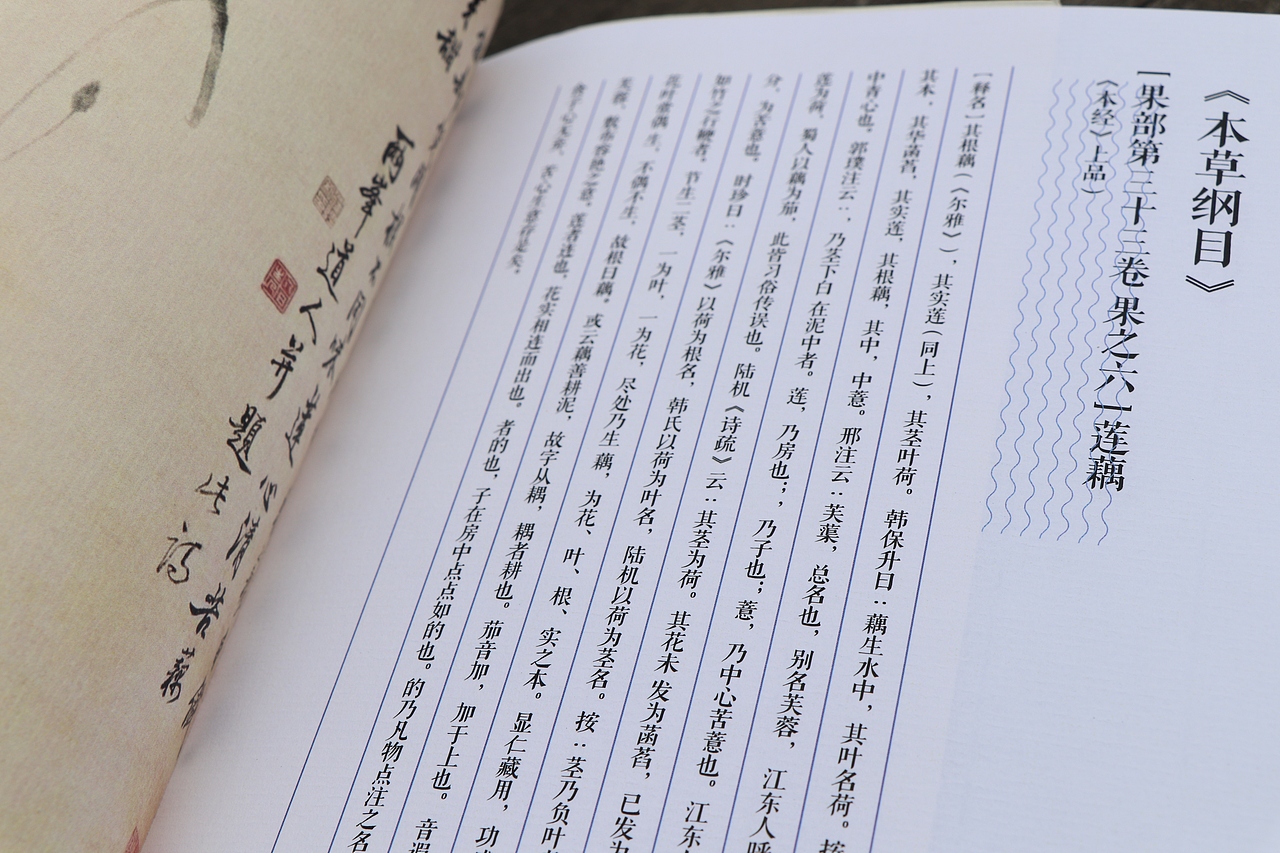 《本草纲目》
［果部第三十三卷 果之六］莲藕
《本经》上品）
［释名］其根藕（《尔雅》），其实莲（同上），其茎叶荷。韩保升曰：藕生水中，其叶名荷。按
其本，其华菡萏，其实莲，其根藕，其中，中薏。邢注云：芙蕖，总名也，别名芙蓉，江东人呼
中青心也。郭璞注云：，乃茎下白 在泥中者。莲，乃房也；，乃子也；薏，乃中心苦薏也。江东
莲为荷，蜀人以藕为茄，此皆习俗传误也。陆机《诗疏》云：其茎为荷。其花未 发为菡萏，已发为
分，为苦薏也。时珍曰：《尔雅》以荷为根名，韩氏以荷为叶名，陆机以荷为茎名。按：茎乃负叶
如竹之行鞭者。节生二茎，一为叶，一为花，尽处乃生 藕，为花、叶、根、实之本。显仁藏用，功
花时常偶 生，不偶不生，故根曰藕。或云藕善耕泥，故字从耦，耦者耕也。茄音加，加于上也。音遐
芙蓉，敷布容艳之意。莲者连也，花实相连而出也。者的也，子在房中点点如的也。的乃凡物点注之名
含苦心也，苦心生意存焉矣。
两峯道人并题